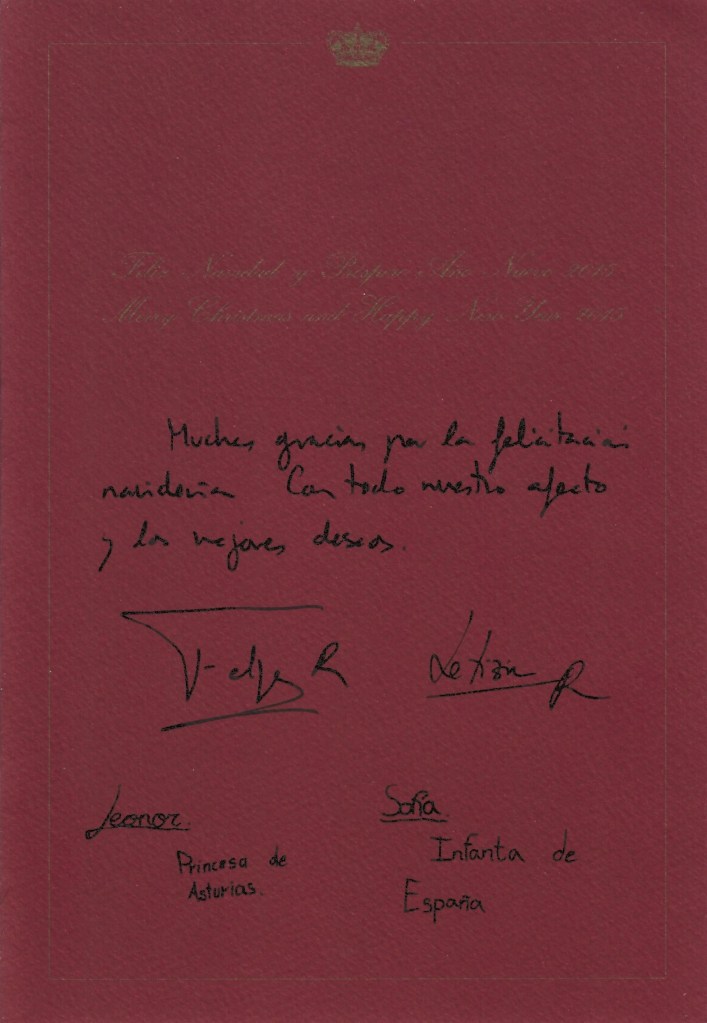 Feliz Navidad y Próspero Año Nuevo 2015
Merry Christmas and Happy New Year 2015
Muchas gracias por la felicitación
navideña Con todo nuestro afecto
y los mejores deseos.
Felipe R
Letizia R
Leonor.
Princesa de
Asturias.
Sofía
Infanta de
España